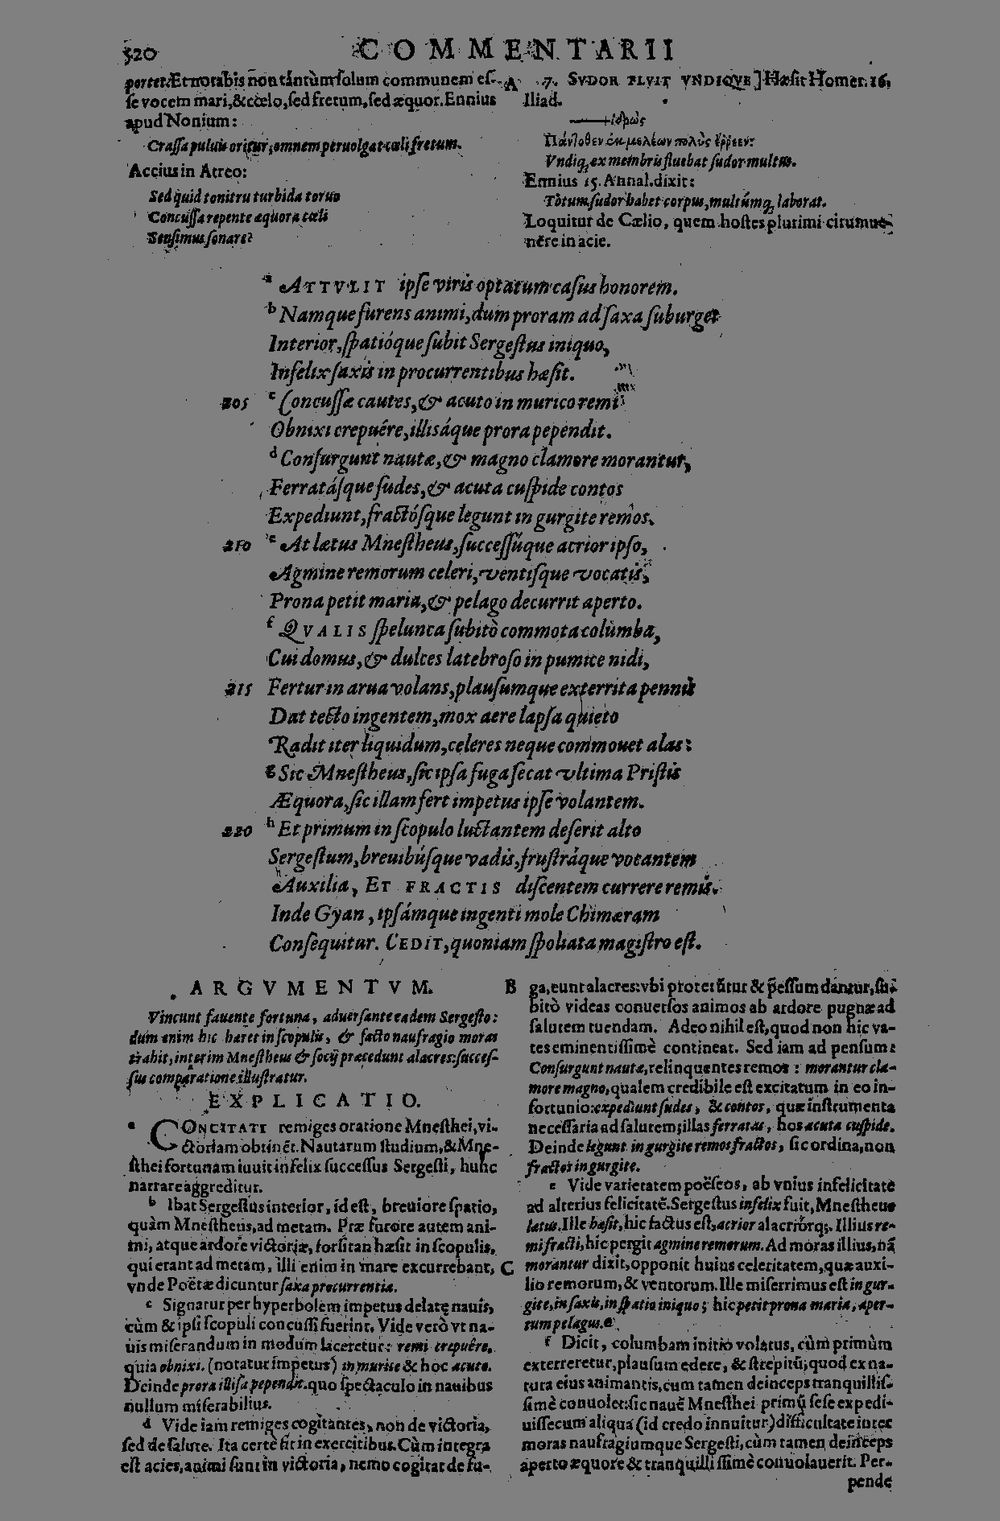 520
COMMENTARII
portet. Et notabis non tantùm solum communem es-
se vocem mari, & cœlo, sed fretum, sed æquor. Ennius
apud Nonium:
Crassa puluis oritur, omnem peruolgat cœli fretum.
Accius in Atreo:
Sed quid tonitru turbida toruo
Concussa repente æquora cœli
Sensimus sonare?
A 7. SVDOR FLVIT VNDIQVE] Hæsit Homer. 16.
Iliad.
ἱδρὼς
Πάντοθεν ἐκ μελέων πολὺς ἔρρεεν:
Vndiq, ex membris fluebat sudor multus.
Ennius 15. Annal. dixit:
Totum sudor habet corpus, multúmq, laborat.
Loquitur de Cælio, quem hostes plurimi circumue-
nêre in acie.
a ATTVLIT ipse viris optatum casus honorem.
b Namque furens animi, dum proram ad saxa suburget
Interior, spatióque subit Sergestus iniquo,
Infelix saxis in procurrentibus hæsit.
205 c Concussæ cautes, & acuto in murice remi
Obnixi crepuêre, illisáque prora pependit.
d Consurgunt nautæ, & magno clamore morantur,
Ferratásque sudes, & acuta cuspide contos
Expediunt, fractósque legunt in gurgite remos.
210 e At lætus Mnestheus, successúque acrior ipso,
Agmine remorum celeri, ventisque vocatis,
Prona petit maria, & pelago decurrit aperto.
f QVALIS spelunca subitò commota columba,
Cui domus, & dulces latebroso in pumice nidi,
215 Fertur in arua volans, plausumque exterrita pennis
Dat tecto ingentem, mox aere lapsa quieto
Radit iter liquidum, celeres neque commouet alas:
g Sic Mnestheus, sic ipsa fuga secat vltima Pristis
Æquora, sic illam fert impetus ipse volantem.
220 h Et primum in scopulo luctantem deserit alto
Sergestum, breuibúsque vadis, frustráque vocantem
Auxilia, ET FRACTIS discentem currere remis.
Inde Gyan, ipsámque ingenti mole Chimæram
Consequitur. CEDIT, quoniam spoliata magistro est.
ARGVMENTVM.
Vincunt fauente fortuna, aduersante eadem Sergesto:
dum enim hic hæret in scopulis, & facto naufragio moras
trahit, interim Mnestheus & socij præcedunt alacres: succes-
sus comparatione illustratur.
EXPLICATIO.
a CONCITATI remiges oratione Mnesthei, vi-
ctoriam obtinēt. Nautarum studium, & Mne-
sthei fortunam iuuit infelix successus Sergesti, hunc
narrare aggreditur.
b Ibat Sergestus interior, id est, breuiore spatio,
quàm Mnestheus, ad metam. Præ furore autem ani-
mi, atque ardore victoriæ, forsitan hæsit in scopulis,
qui erant ad metam, illi enim in mare excurrebant,
vnde Poëtæ dicuntur saxa procurrentia.
c Signatur per hyperbolem impetus delatę nauis,
cùm & ipsi scopuli concussi fuerint. Vide verò vt na-
uis miserandum in modum laceretur: remi crepuêre,
quia obnixi. (notatur impetus) in murice & hoc acuto.
Deinde prora illisa pependit. quo spectaculo in nauibus
nullum miserabilius.
d Vide iam remiges cogitantes, non de victoria,
sed de salute. Ita certè fit in exercitibus. Cùm integra
est acies, animi sunt in victoria, nemo cogitat de fu-
B ga, eunt alacres: vbi proteruntur & pessum dantur, su-
bitò videas conuersos animos ab ardore pugnæ ad
salutem tuendam. Adeo nihil est, quod non hic va-
tes eminentissimè contineat. Sed iam ad pensum:
Consurgunt nautæ, relinquentes remos: morantur cla-
more magno, qualem credibile est excitatum in eo in-
fortunio: expediunt sudes, & contos, quæ instrumenta
necessaria ad salutem; illas ferratas, hos acuta cuspide.
Deinde legunt in gurgite remos fractos, sic ordina, non
fractos in gurgite.
e Vide varietatem poëseos, ab vnius infelicitate
ad alterius felicitatē. Sergestus infelix fuit, Mnestheus
lætus. Ille hæsit, hic factus est, acrior alacriórq;. Illius re-
mi fracti, hic pergit agmine remorum. Ad moras illius, nā
C morantur dixit, opponit huius celeritatem, quæ auxi-
lio remorum, & ventorum. Ille miserrimus est in gur-
gite, in saxis, in spatio iniquo; hic petit prona maria, aper-
tum pelagus.
f Dicit, columbam initio volatus, cùm primùm
exterreretur, plausum edere, & strepitū; quod ex na-
tura eius animantis, cum tamen deinceps tranquillis-
simè conuolet: sic nauē Mnesthei primū sese expedi-
uisse cum aliqua (id credo innuitur) difficultate inter
moras naufragiumque Sergesti, cùm tamen deinceps
aperto æquore & tranquillissimè conuolauerit. Per-
pende